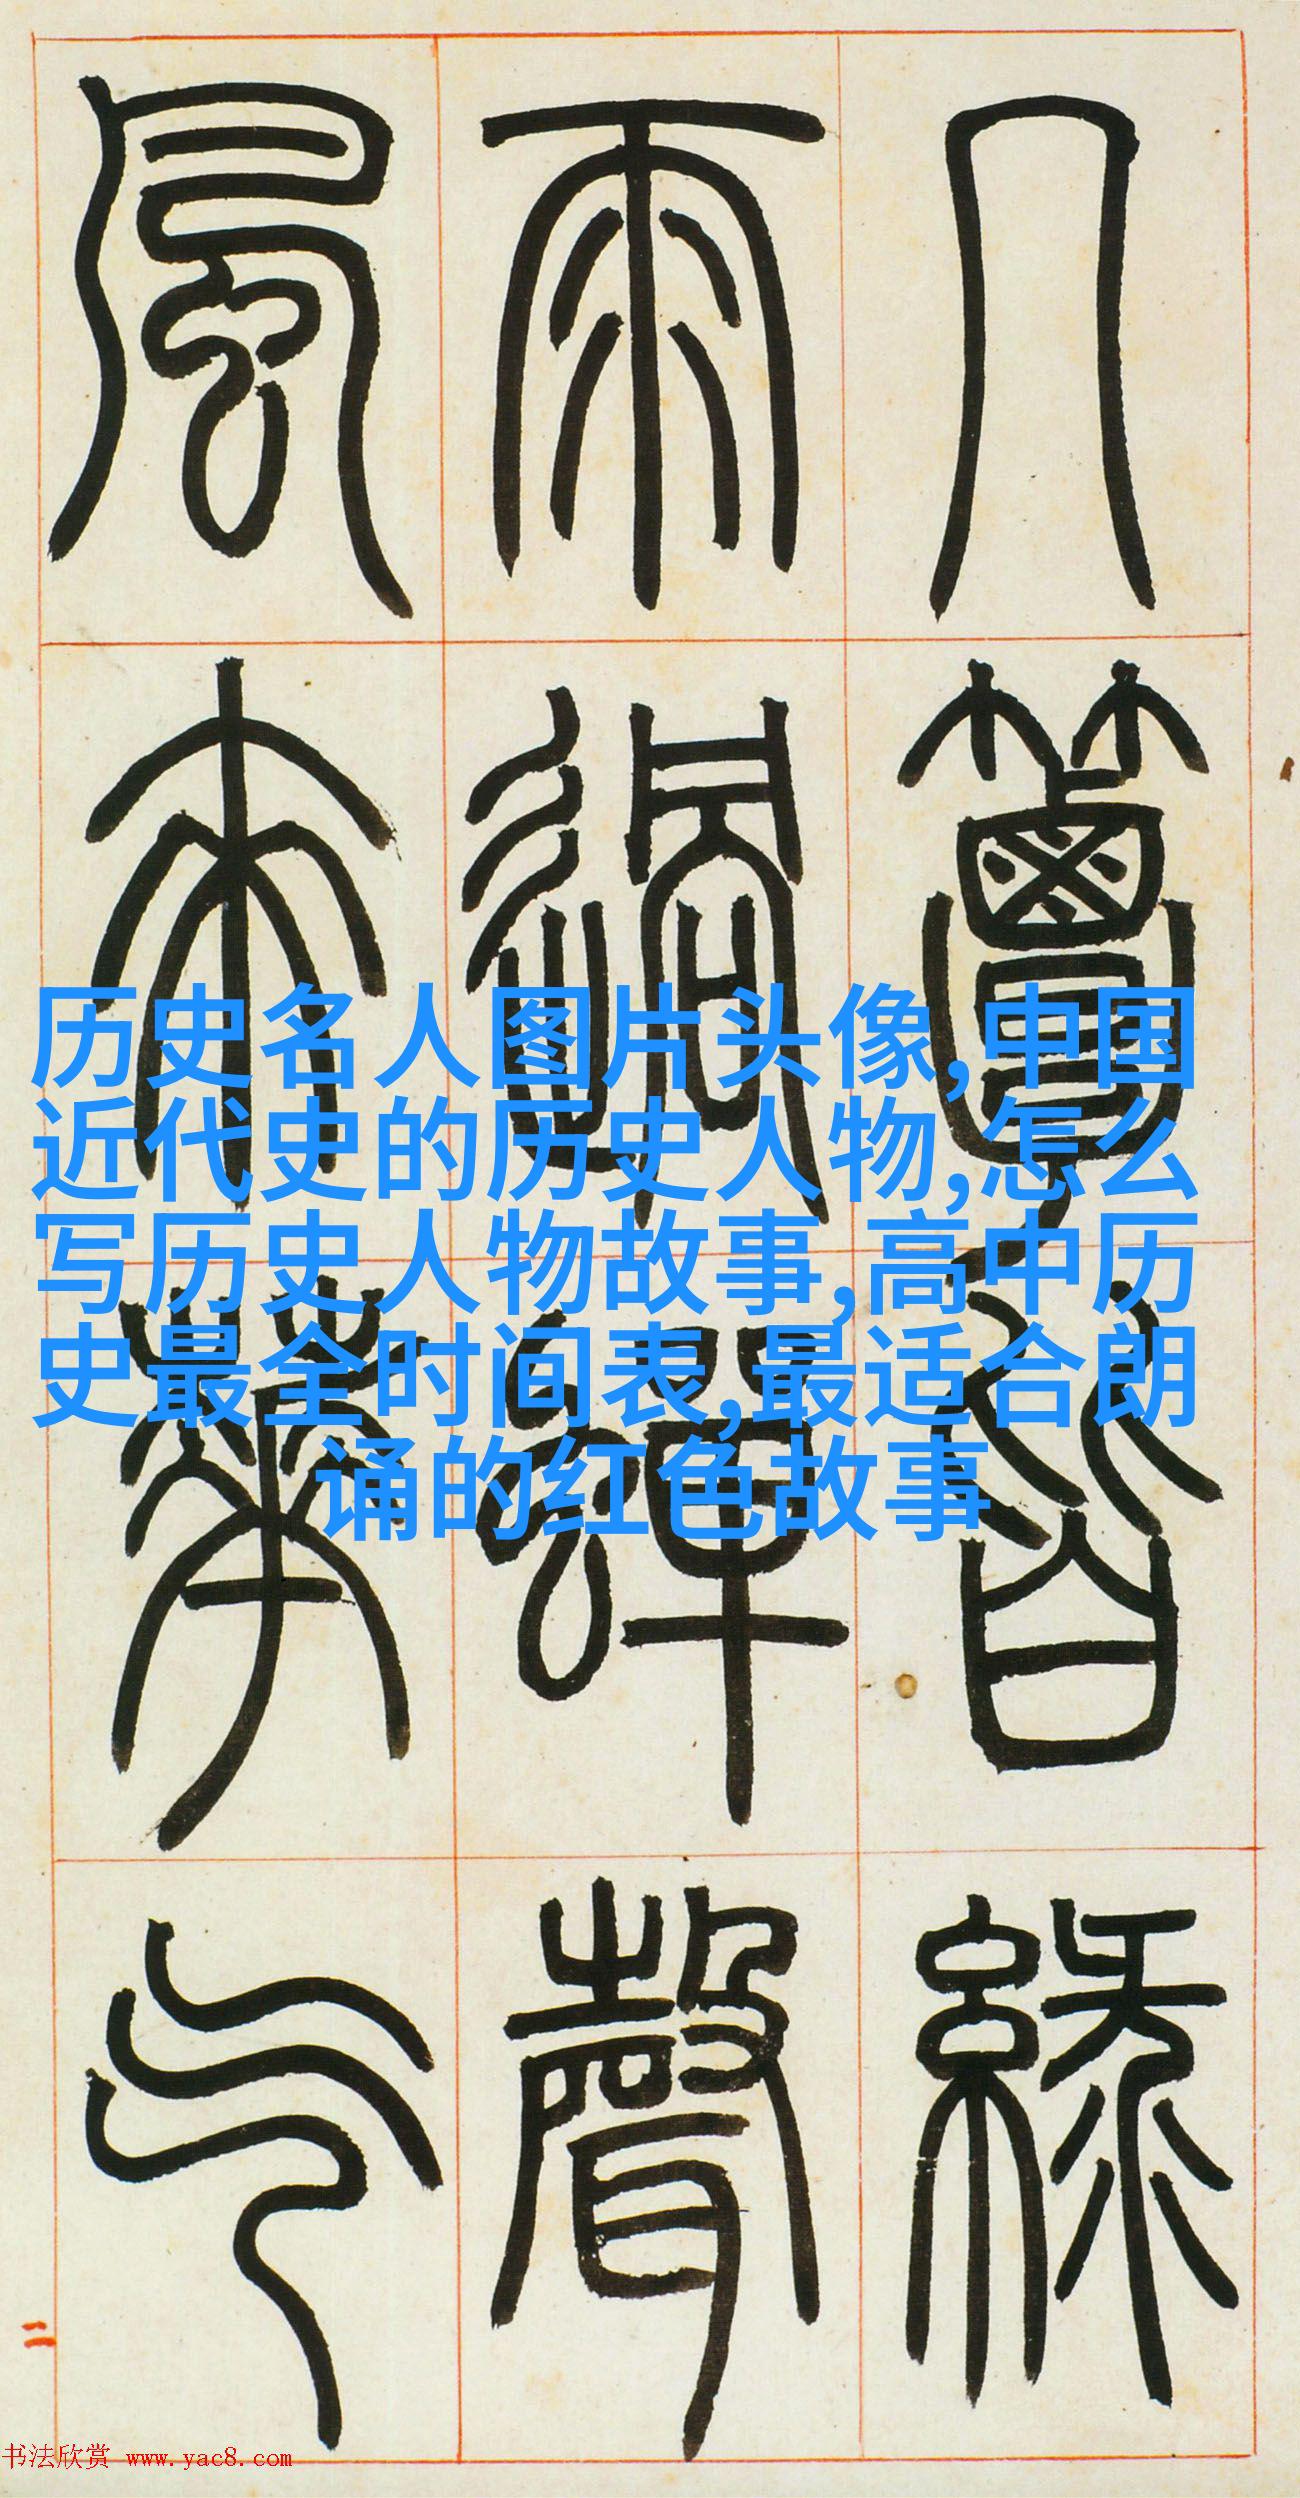 几簟皆綠
雨過蟬聲
風來華气
历史名人图片头像,中国
近代史的历史人物,怎么
写历史人物故事,高中历
史最全时间表,最适合朗
诵的红色故事
二
书法欣赏 www.yac8.com